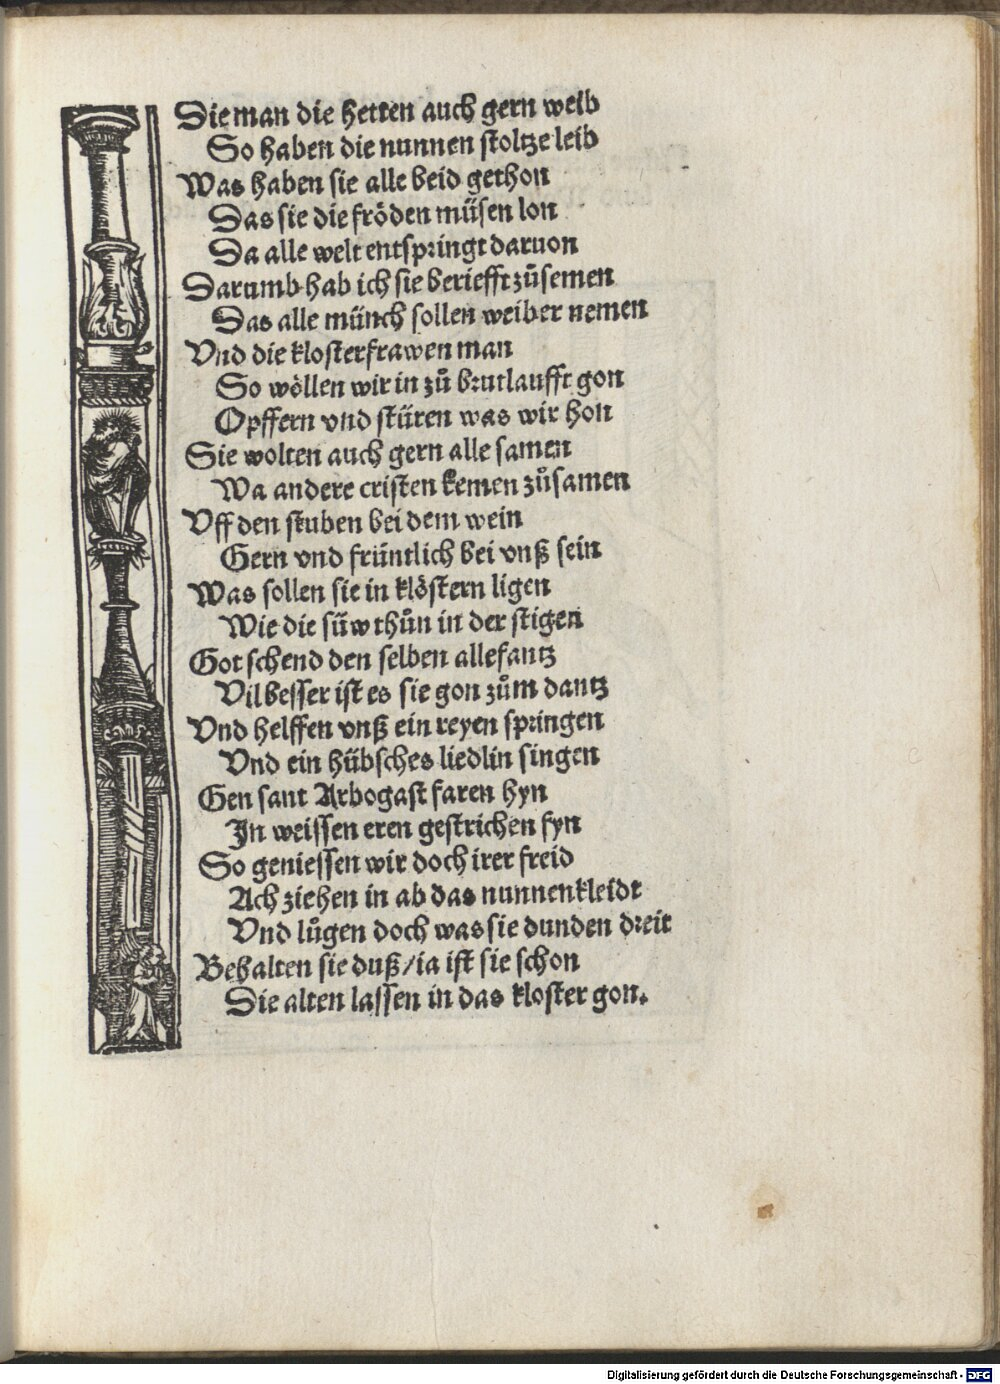 Die man die hetten auch gern weib
So haben die nunnen stoltze leib
Was haben sie alle beid gethon
Das sie die fröden müsen lon
Da alle welt entspringt daruon
Darumb hab ich sie beriefft zůsemen
Das alle münch sollen weiber nemen
Vnd die klosterfrawen man
So wöllen wir in zů brutlaufft gon
Opffern vnd stüren was wir hon
Sie wolten auch gern alle samen
Wa andere cristen kemen zůsamen
Vff den stuben bei dem wein
Gern vnd früntlich bei vnß sein
Was sollen sie in klöstern ligen
Wie die süw thůn in der stigen
Got schend den selben allefantz
Vil besser ist es sie gon zům dantz
Vnd helffen vnß ein reyen springen
Vnd ein hübsches liedlin singen
Gen sant Arbogast faren hyn
In weissen eren gestrichen fyn
So geniessen wir doch irer freid
Ach ziehen in ab das nunnenkleidt
Vnd lůgen doch was sie dunden dreit
Behalten sie duß/ia ist sie schon
Die alten lassen in das kloster gon.
Digitalisierung gefördert durch die Deutsche Forschungsgemeinschaft - DFG